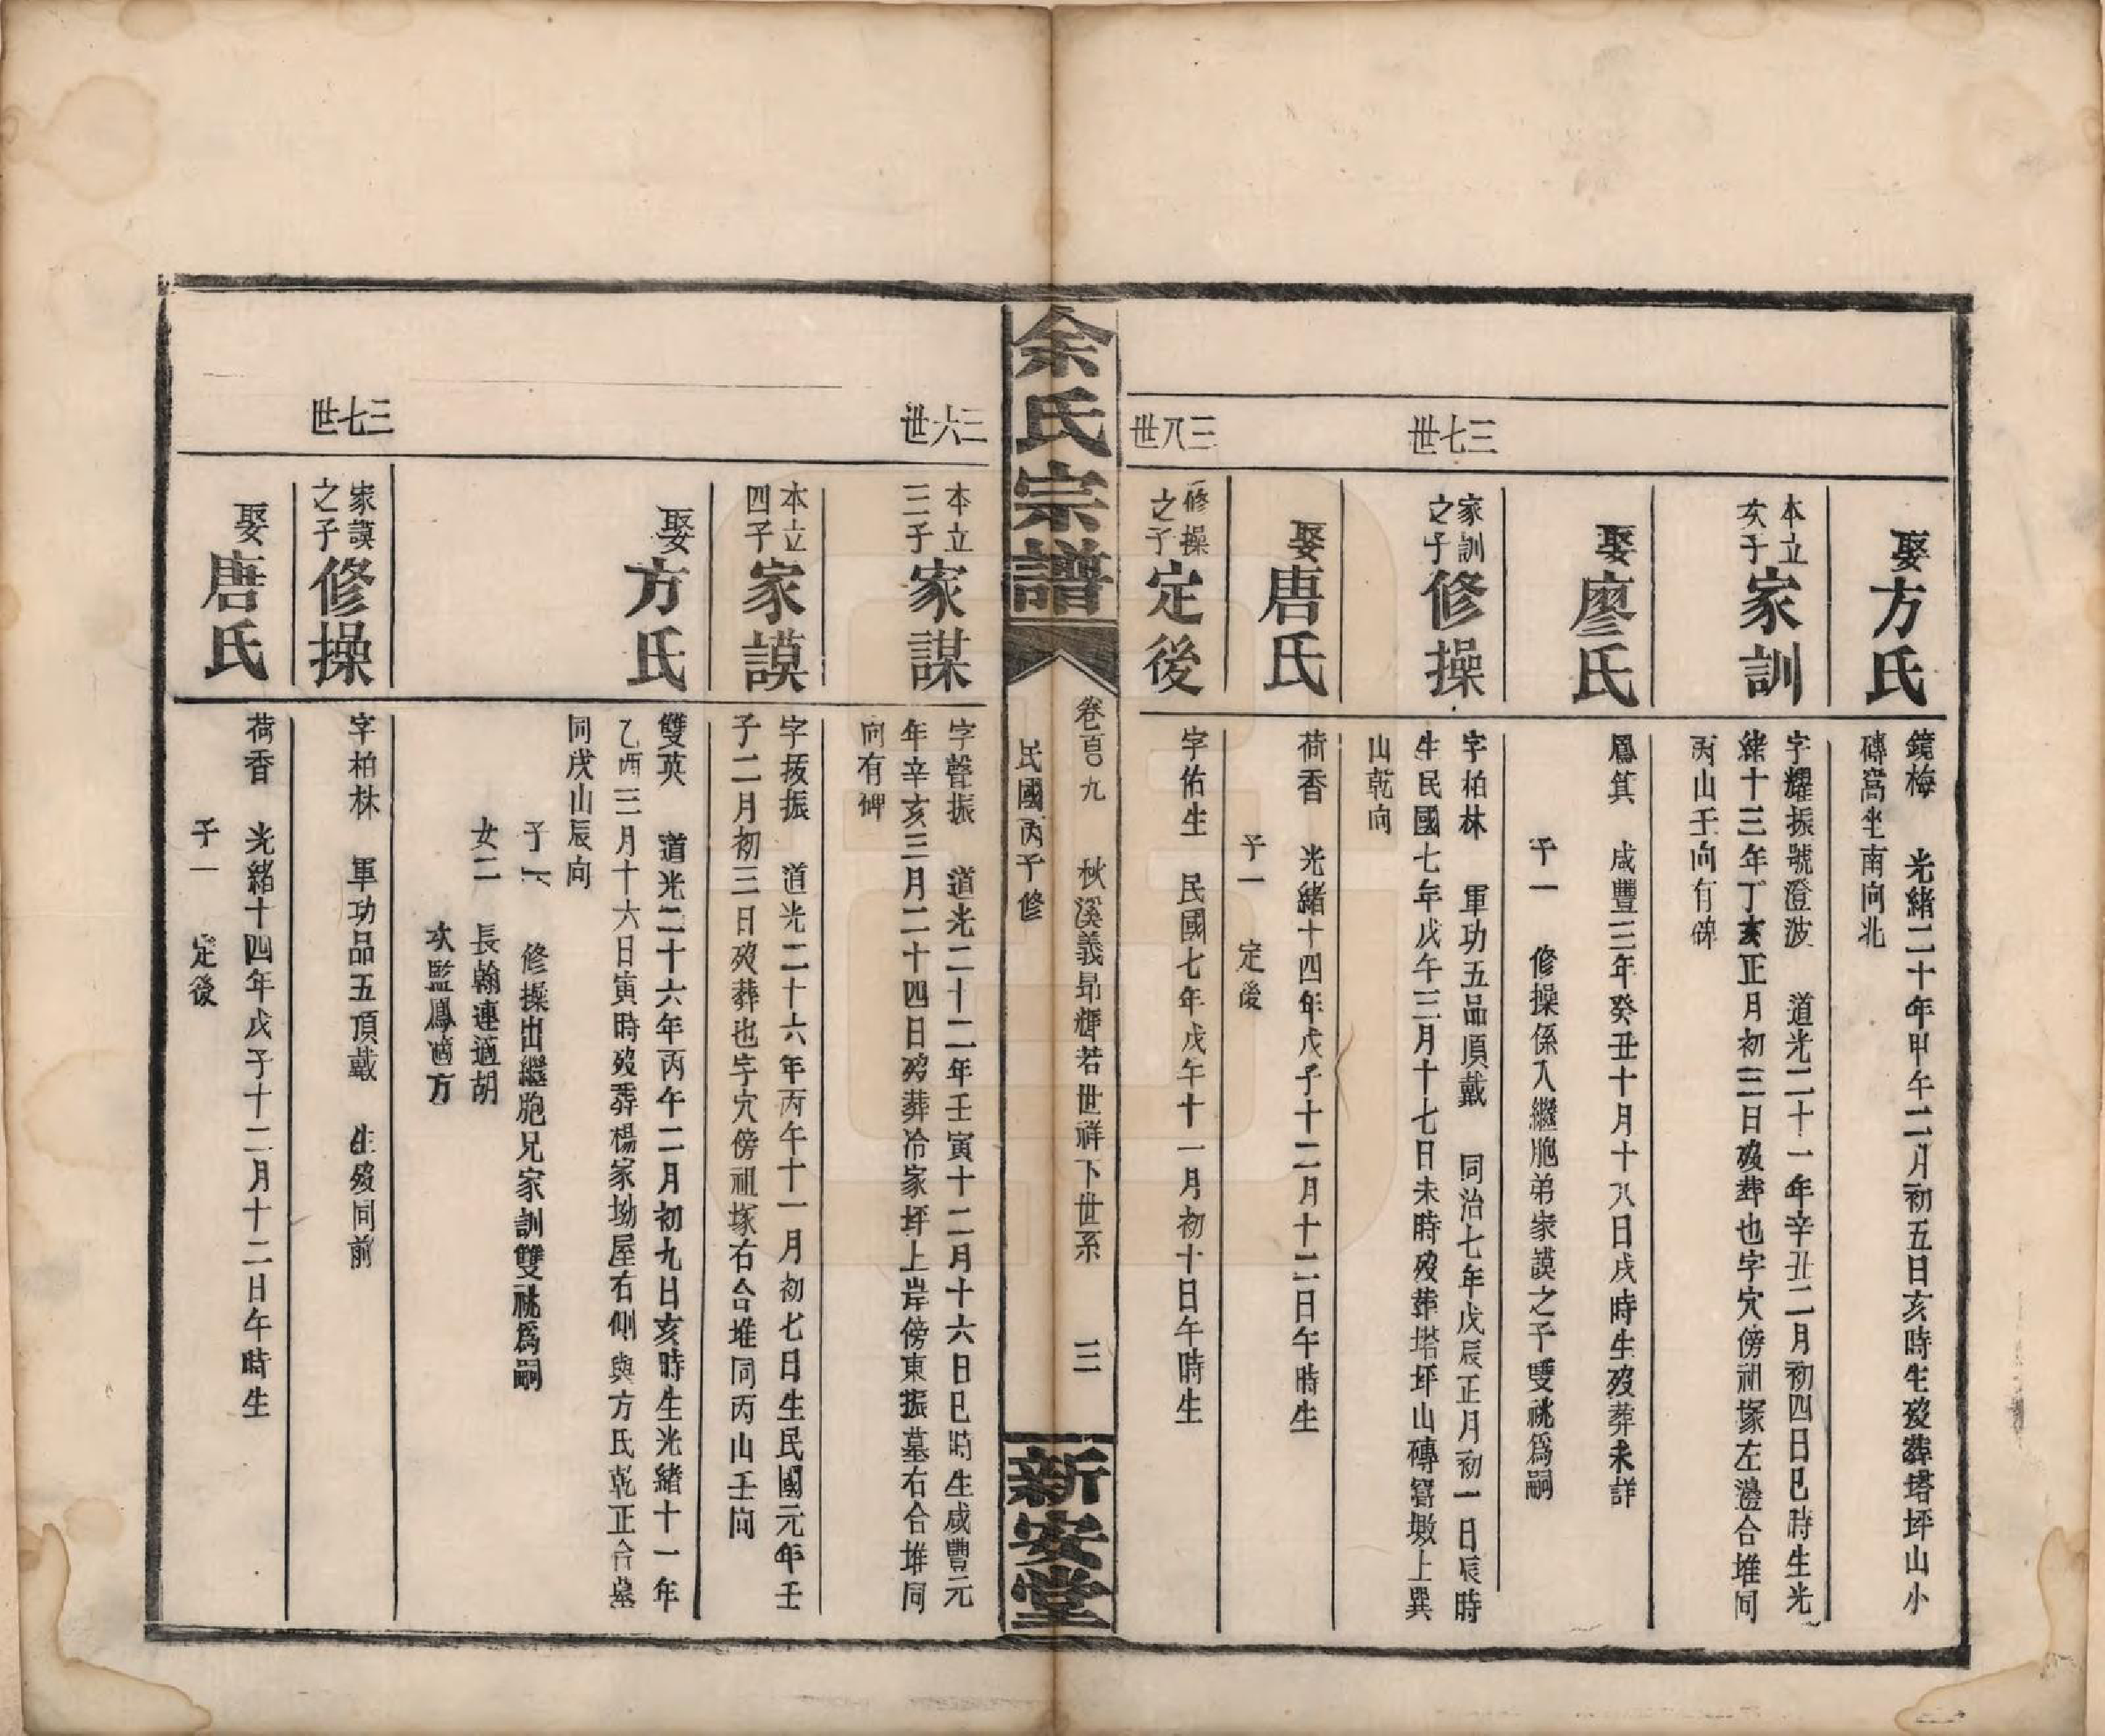 娶方氏
鏡梅　光緒二十年甲午二月初五日亥時生歿葬塔坪山小
磚窩坐南向北
本立次子家訓
字耀振號澄波　道光二十一年辛丑二月初四日巳時生光
緒十三年丁亥正月初三日歿葬也字穴傍祖塚左邊合堆同
丙山壬向有碑
娶廖氏
鳳箕　咸豐三年癸丑十月十八日戌時生歿葬未詳
子一　修操係入繼胞弟家謨之子雙祧爲嗣
三七世
家訓之子修操
字柏林　軍功五品頂戴　同治七年戊辰正月初一日辰時
生民國七年戊午三月十七日未時歿葬塔坪山磚窰墩上巽
山乾向
娶唐氏
荷香　光緒十四年戊子十二月十二日午時生
子一　定後
三八世
修操之子定後
字佑生　民國七年戊午十一月初十日午時生
余氏宗譜
卷百九　秋溪義昂輝若世祥下世系　三
民國丙子修
新安堂
三六世
本立三子家謀
字聲振　道光二十二年壬寅十二月十六日巳時生咸豐元
年辛亥三月二十四日歿葬冷家坪上岸傍東振墓右合堆同
向有碑
本立四子家謨
字扳振　道光二十六年丙午十一月初七日生民國元年壬
子二月初三日歿葬也字穴傍祖塚右合堆同丙山壬向
娶方氏
雙英　道光二十六年丙午二月初九日亥時生光緒十一年
乙酉三月十六日寅時歿葬楊家坳屋右側與方氏乾正合墓
同戌山辰向
子一　修操出繼胞兄家訓雙祧爲嗣
女二　長翰連適胡
次監鳳適方
三七世
家謨之子修操
字柏林　軍功品五頂戴　生歿同前
娶唐氏
荷香　光緒十四年戊子十二月十二日午時生
子一　定後